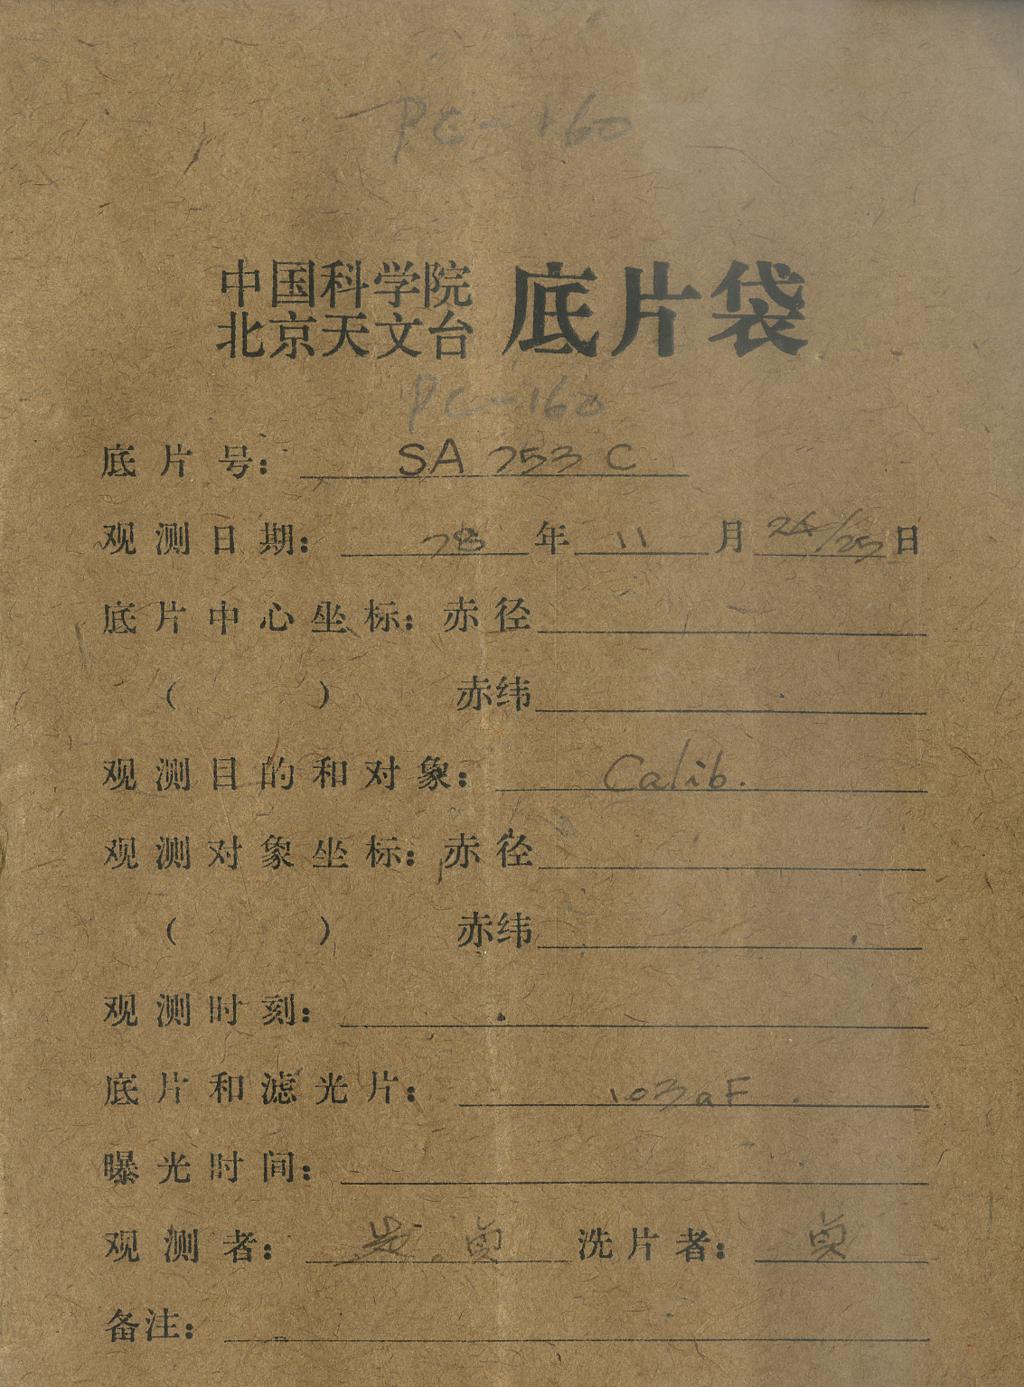 PC-160
中国科学院
北京天文台 底片袋
PC-160
底片号： SA 753 C
观测日期： 78 年 11 月 24/25 日
底片中心坐标：赤径
（ ） 赤纬
观测目的和对象： Calib.
观测对象坐标：赤径
（ ） 赤纬
观测时刻：
底片和滤光片： 103aF
曝光时间：
观测者： 贞 洗片者： 贞
备注：